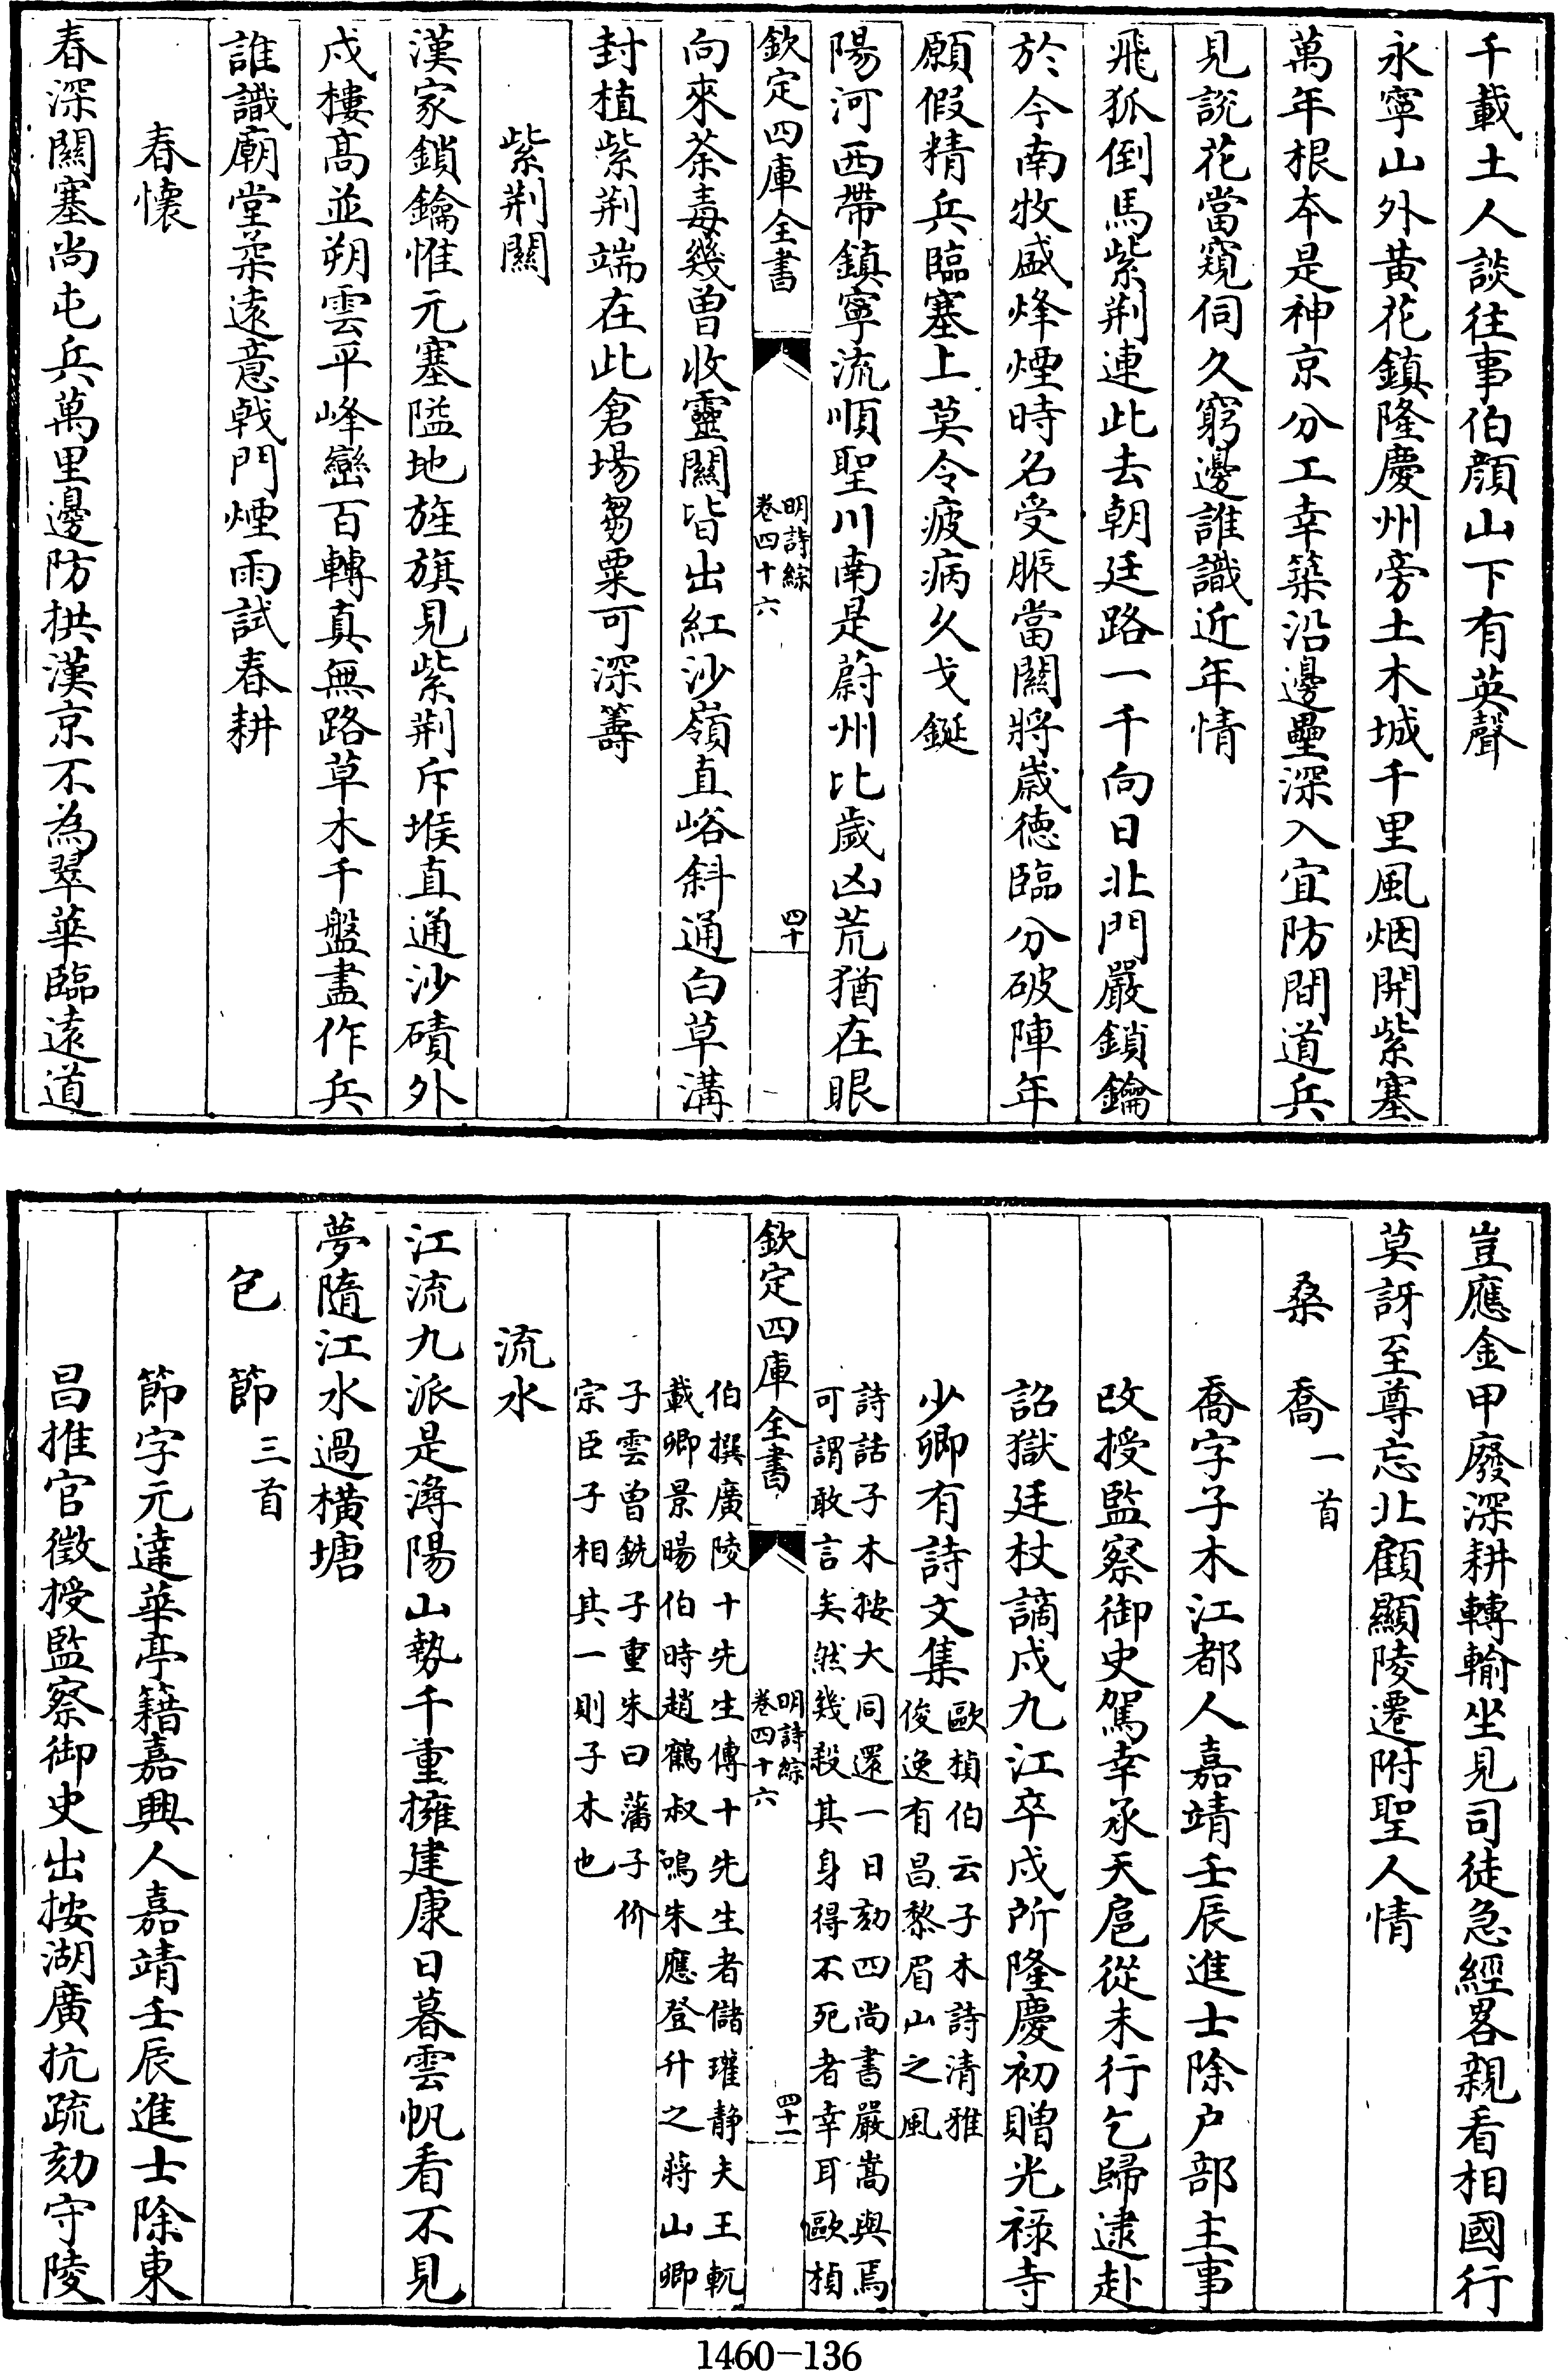 千載土人談往事伯顔山下有英聲
永寧山外黃花鎮隆慶州旁土木城千里風烟開紫塞
萬年根本是神京分工幸築沿邊壘深入宜防間道兵
見説花當窺伺久窮邊誰識近年情
飛狐倒馬紫荆連此去朝廷路一千向日北門嚴鎖鑰
於今南牧盛烽煙時名受脤當關將歲徳臨分破陣年
願假精兵臨塞上莫令疲病久戈鋋
陽河西帶鎮寧流順聖川南是蔚州比歲凶荒猶在眼
欽定四庫全書
明詩綜
卷四十六
四十
向來荼毒幾曽收靈關皆出紅沙嶺直峪斜通白草溝
封植紫荆端在此倉場芻粟可深籌
紫荆關
漢家鎖鑰惟元塞隘地旌旗見紫荆斥堠直通沙磧外
戍樓髙並朔雲平峰巒百轉真無路草木千盤盡作兵
誰識廟堂柔逺意戟門煙雨試春耕
春懷
春深關塞尚屯兵萬里邊防拱漢京不為翠華臨逺道
豈應金甲廢深耕轉輸坐見司徒急經畧親看相國行
莫訝至尊忘北顧顯陵遷附聖人情
桑喬一首
喬字子木江都人嘉靖壬辰進士除户部主事
改授監察御史駕幸承天扈從未行乞歸逮赴
詔獄廷杖謫戍九江卒戍所隆慶初贈光禄寺
少卿有詩文集
歐楨伯云子木詩清雅
俊逸有昌黎眉山之風
詩話子木按大同還一日劾四尚書嚴嵩與焉
可謂敢言矣然幾殺其身得不死者幸耳歐楨
欽定四庫全書
明詩綜
卷四十六
四十一
伯撰廣陵十先生傳十先生者儲瓘静夫王軏
載卿景暘伯時趙鶴叔鳴朱應登升之蔣山卿
子雲曽銑子重朱曰藩子价
宗臣子相其一則子木也
流水
江流九派是潯陽山勢千重擁建康日暮雲帆看不見
夢隨江水過横塘
包節三首
節字元達華亭籍嘉興人嘉靖壬辰進士除東
昌推官徵授監察御史出按湖廣抗疏劾守陵
1460-136